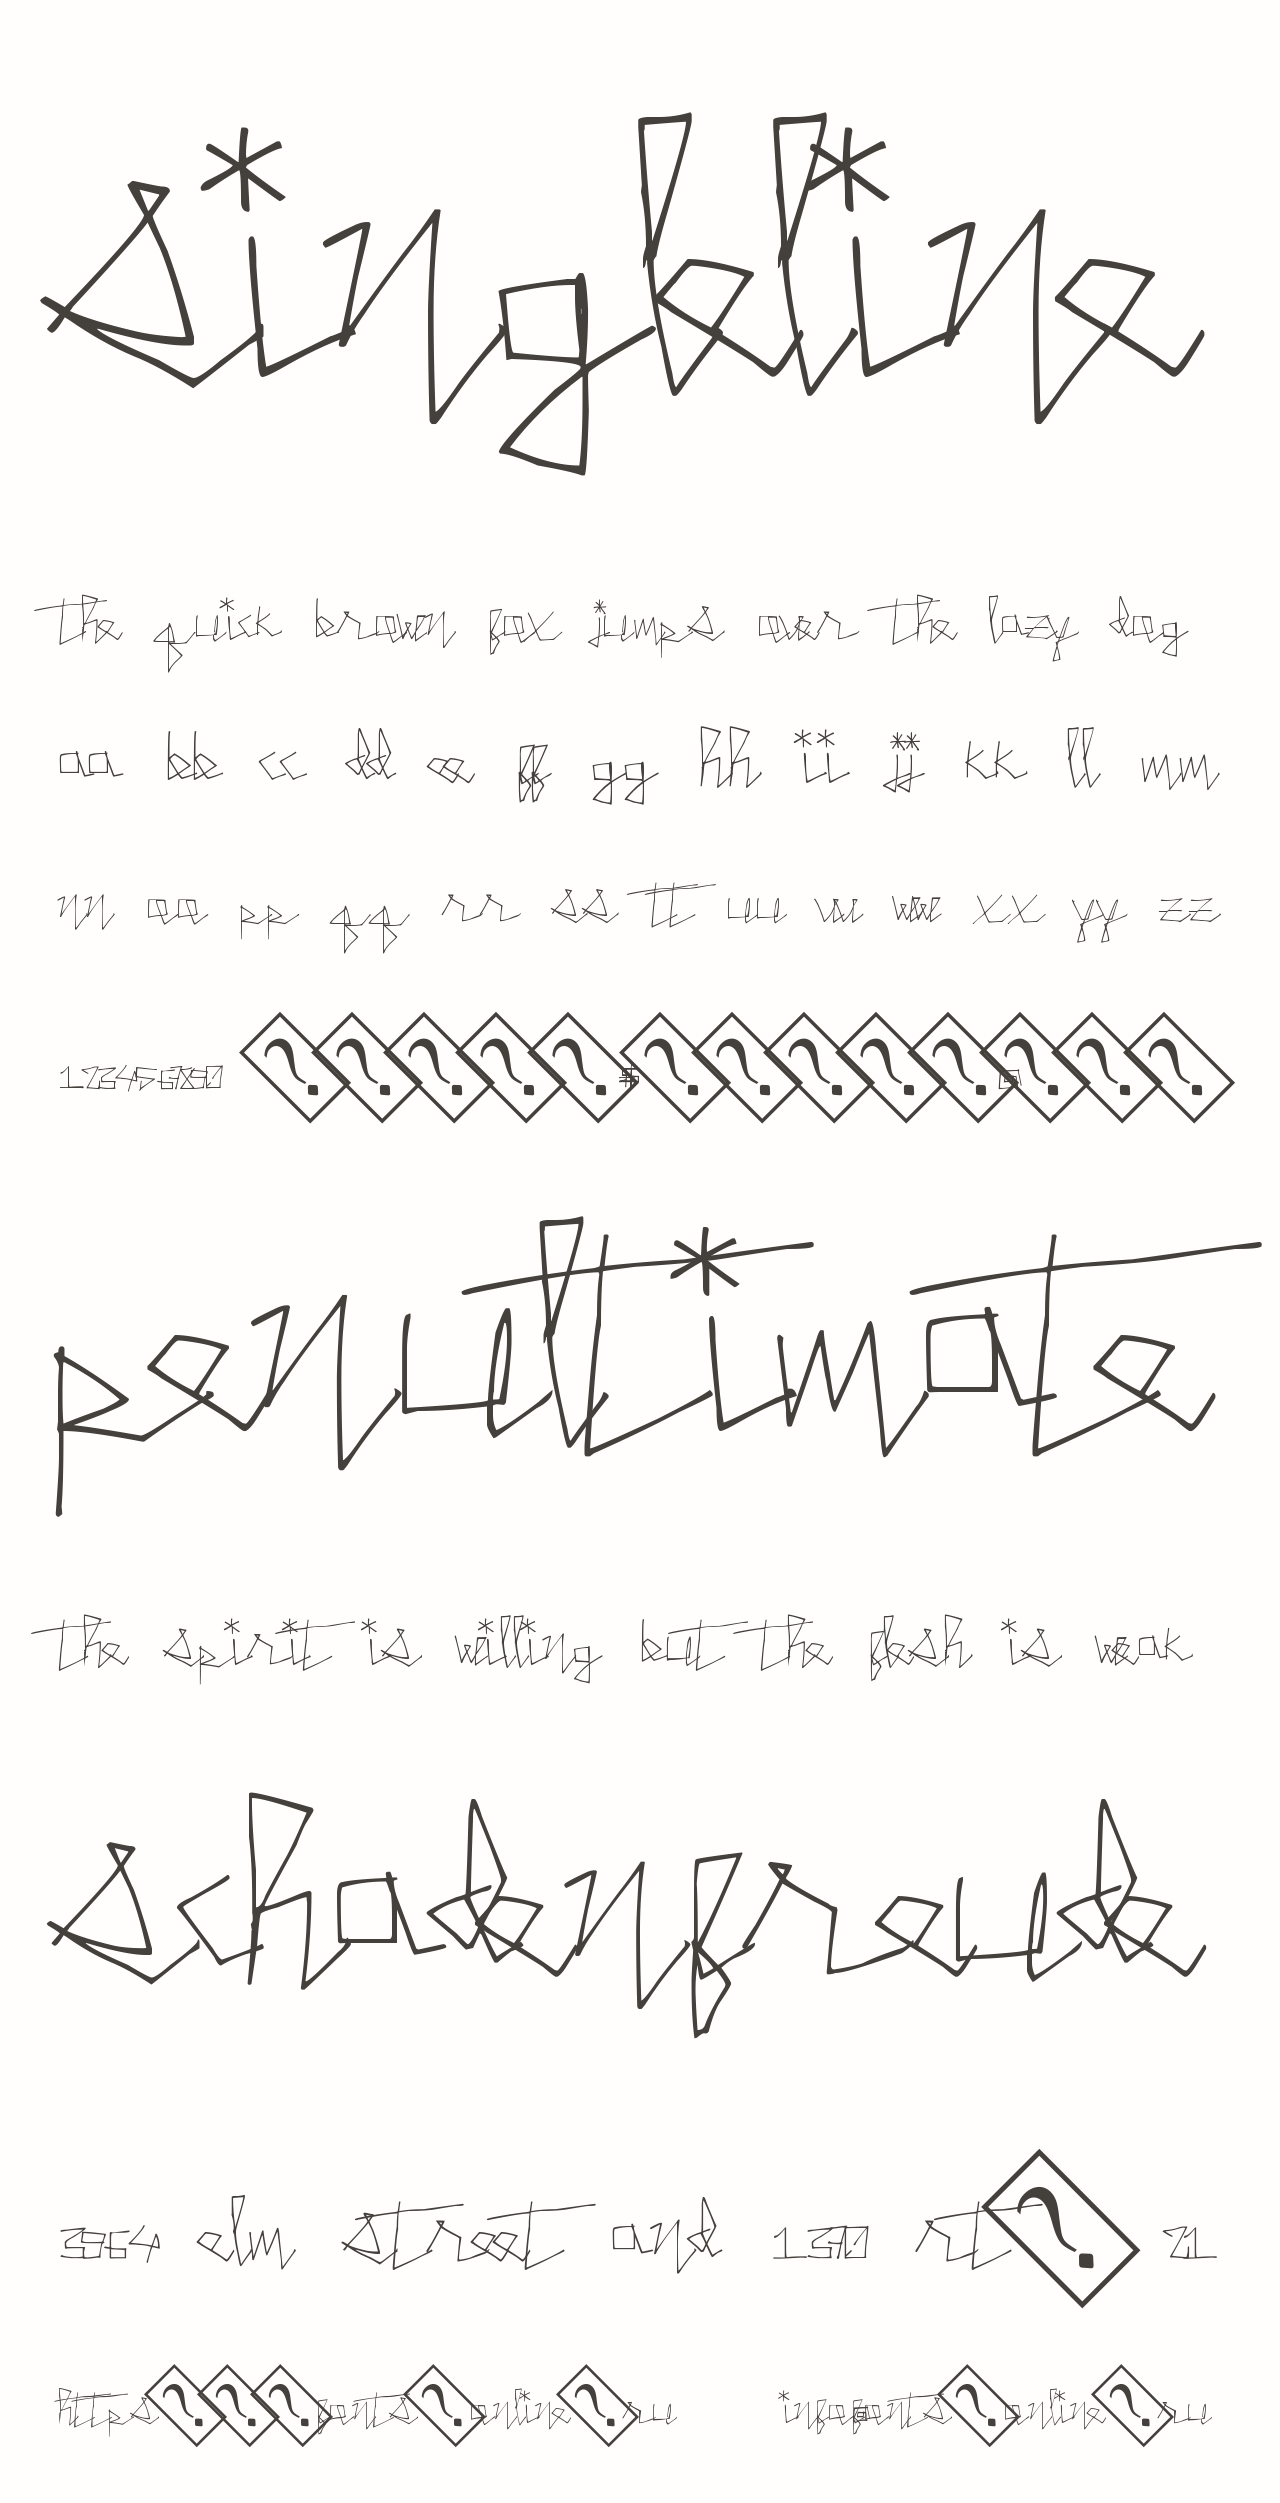 singleline
the quick brown fox jumps over the lazy dog
aa bb cc dd ee ff gg hh ii jj kk ll mm
nn oo pp qq rr ss tt uu vv ww xx yy zz
1234567890?????#?????@???
penultimate
the spirit is willing but the flesh is weak
schadenfreude
elm street and rt? 21
https???fonts?online?ru info@fonts?online?ru